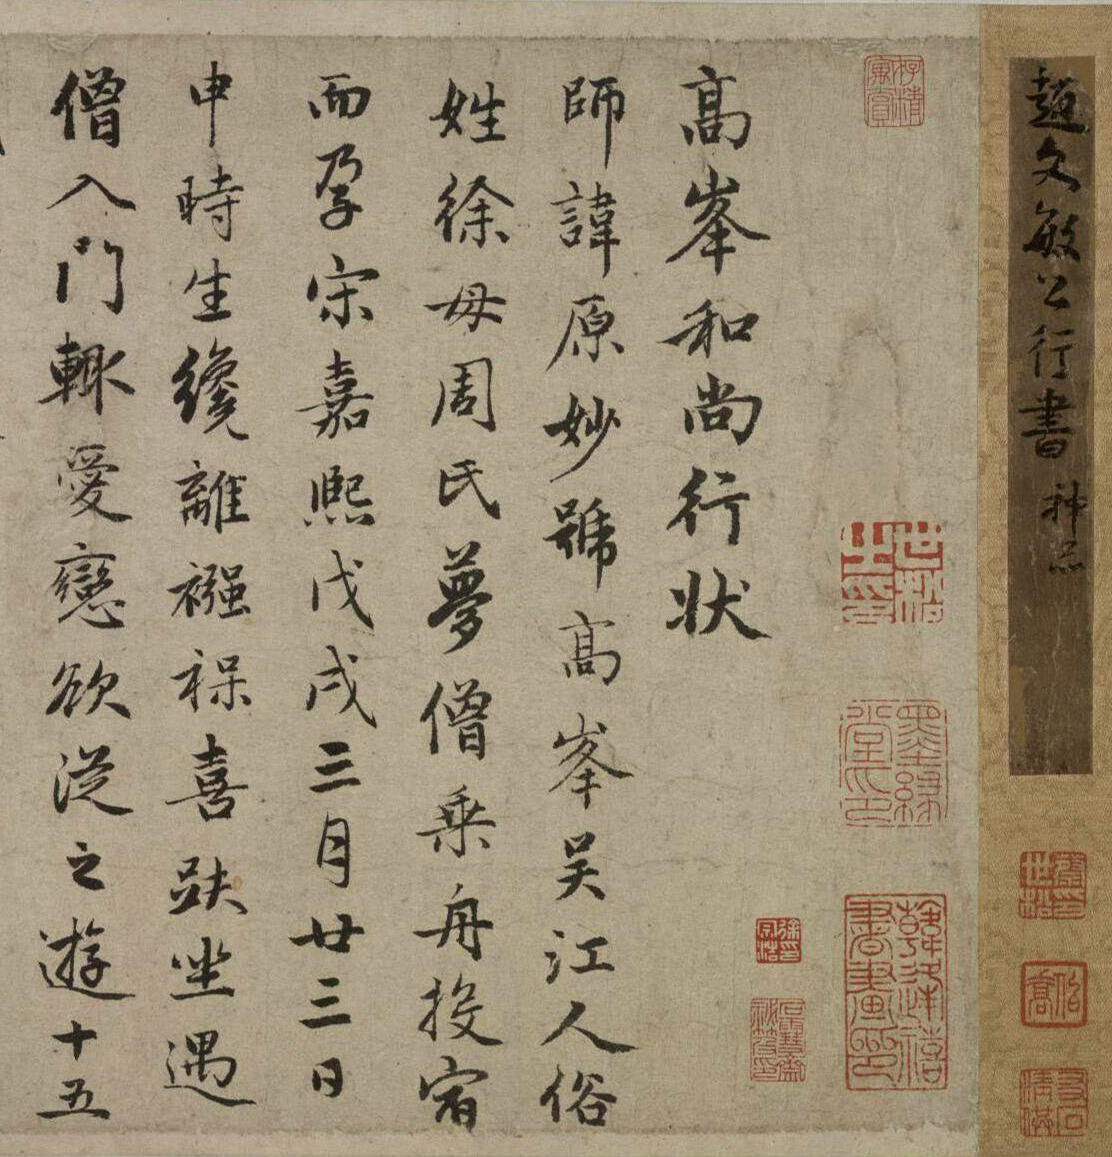 趙文敏公行書 神品
高峯和尚行狀
師諱原妙號高峯吴江人俗
姓徐母周氏夢僧乘舟投宿
而孕宋嘉熙戊戌三月廿三日
申時生纔離襁褓喜趺坐遇
僧入門輒愛戀欲從之遊十五